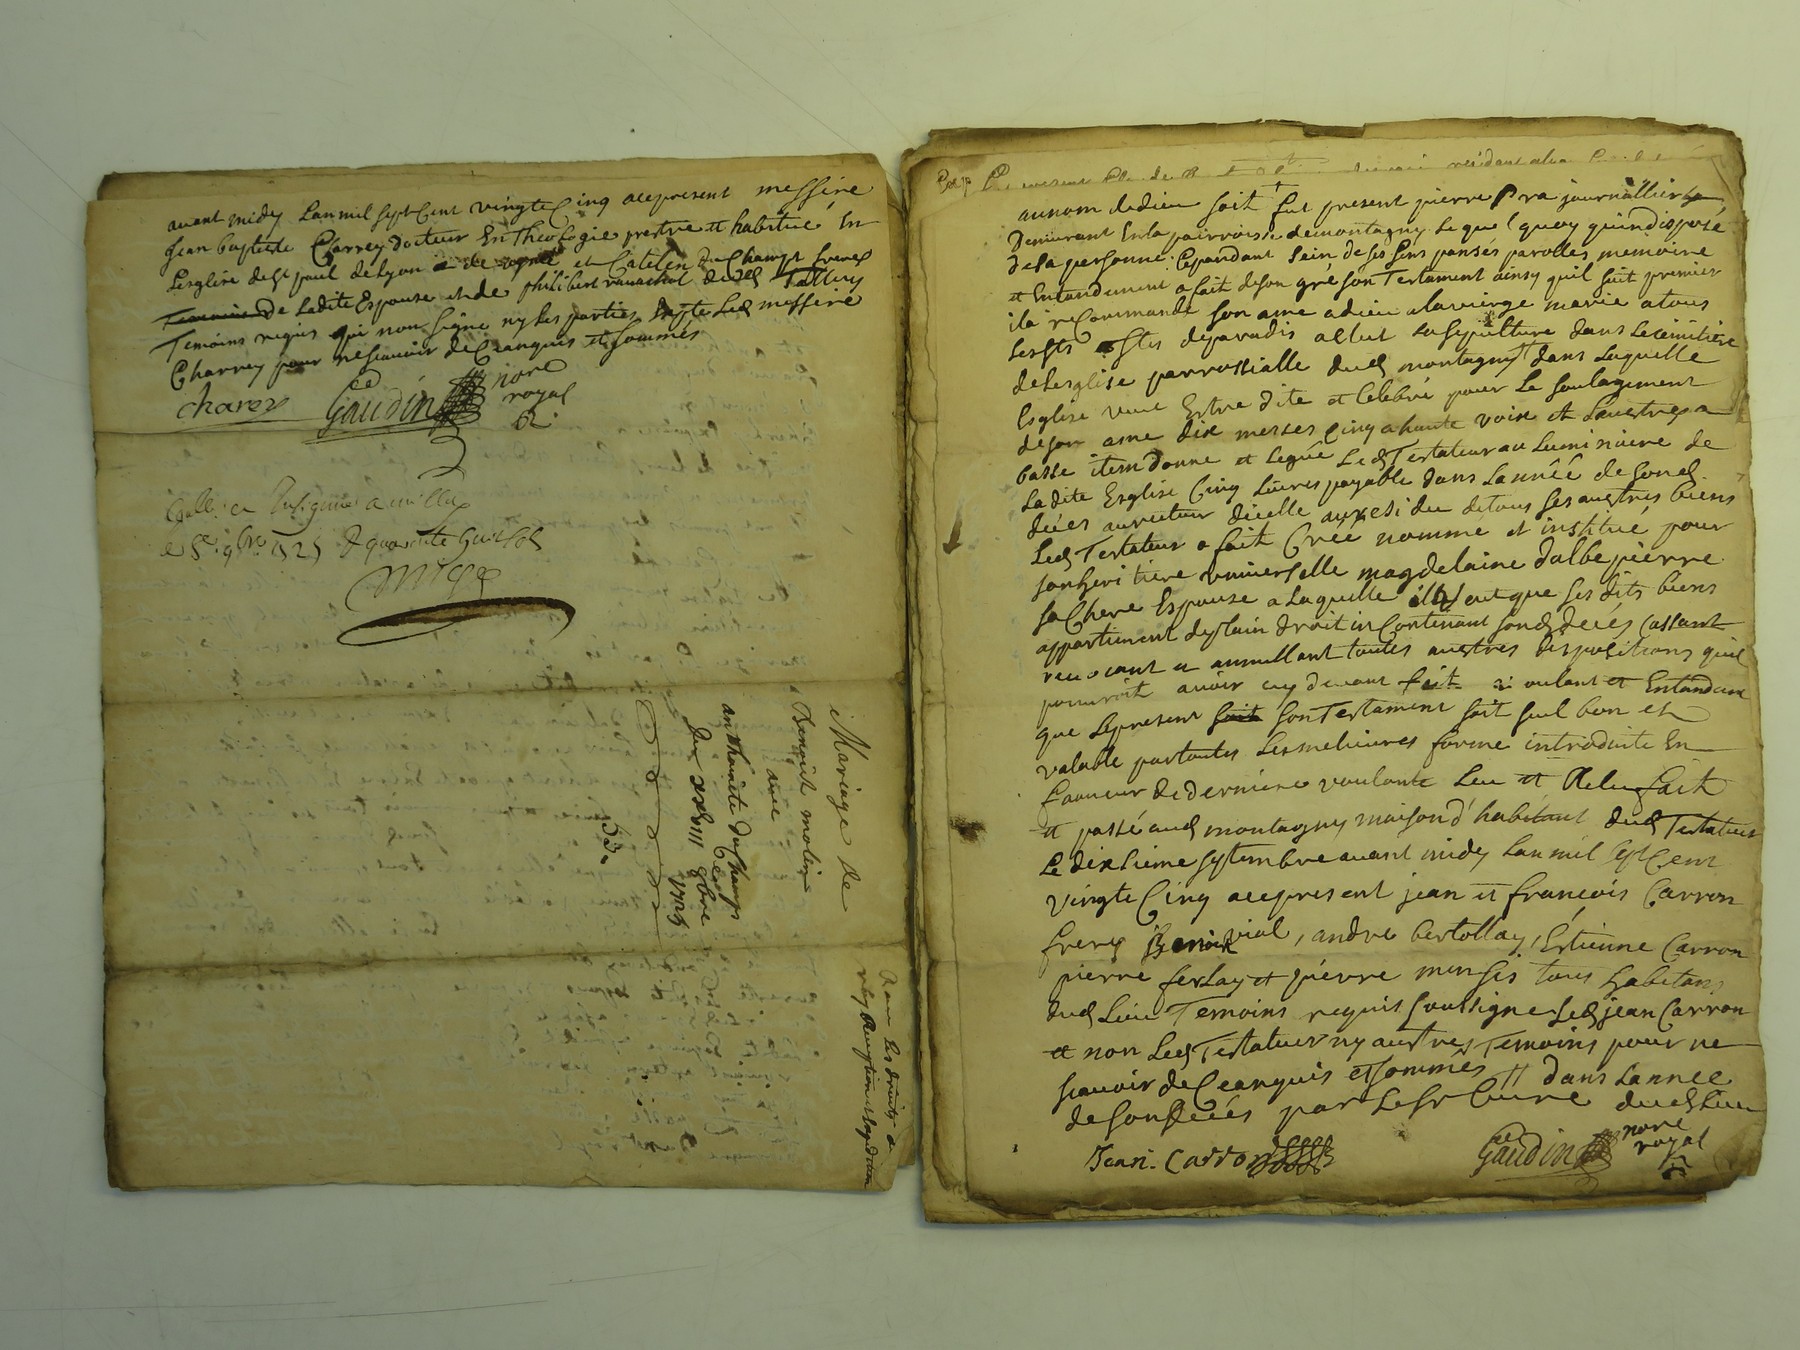 avant midy Lanmil sept Cent vingte Cinq acepresent messire
Jean baptiste Carrey docteur En theologie prestre et habitué En
Lesglise de st paul de Lyon et Catelin du Champt freres
Temoins de Ladite Espouse et de philibert dud Tallury
Temoins requis qui non signe ny les parties Led messire
Charrey pour ne scavoir de Ceanquis et sommés
charey Gaudin nore
royal
quarante huit sols
Mariage de
Benoist molin
avec
anthoinette du Champs
Du XXVIII 9bre
1725
53.
au nom de dieu soit fut present pierre Pra journallier
Demeurant En la pairroisse de montagny Le que quindisposé
de sa personne Cepandant sain de ses sens pansés parolles memoire
et Entandement a fait de son gré son Testament ainsy quil suit premier
ila recommandé son ame a dieu alavierge marie a tous
Les sts stes de paradis a Eleu sa sepulture dans Le cemitiere
de Lesglise parrossialle dud montagny dans Laquelle
Esglise veut Estre dite et Celebré pour Le soulagement
de son ame dix messes Cinq a haute voix et Lauestres a
basse item donne et Legue Led Testateur au Luminaire de
Ladite Esglise Cinq Livres payable dans Lannéé de sond
décés au recteur dicelle au residu de tous ses auestres biens
Led Testateur a fait Créé nommé et institué pour
son heritiere universelle magdelaine dalbepierre
sa Chere Espouse a Laquelle il veut que ses dits biens
appartiennent de plain droit in Continant sond décés Cassant
revocant et annullant toutes auestres dispositions quil
pourroit avoir cy devant fait voulant et Entandant
que Lepresent son Testament soit seul bon et
valable par toutes Les melieures forme introduite En
faveur de derniere voulonte Leu et Releu fait
et passé aud montagny maison d'habitant dud Testateur
Le dixhieme septembre avant midy Lan mil sept Cent
vingte Cinq acepresent jean et francois Carron
freres Benoist vial, andre bertollay, Estienne Carron
pierre ferlay et pierre tous habitans
dud Lieu Temoins requis soussigne Led jean Carron
et non Led Testateur ny auestres Temoins pour ne
scavoir de Ceanquis et sommés // dans Lannee
de son décés par Le sr Cure dud Lieu
Jean Carron Gaudin nore
royal